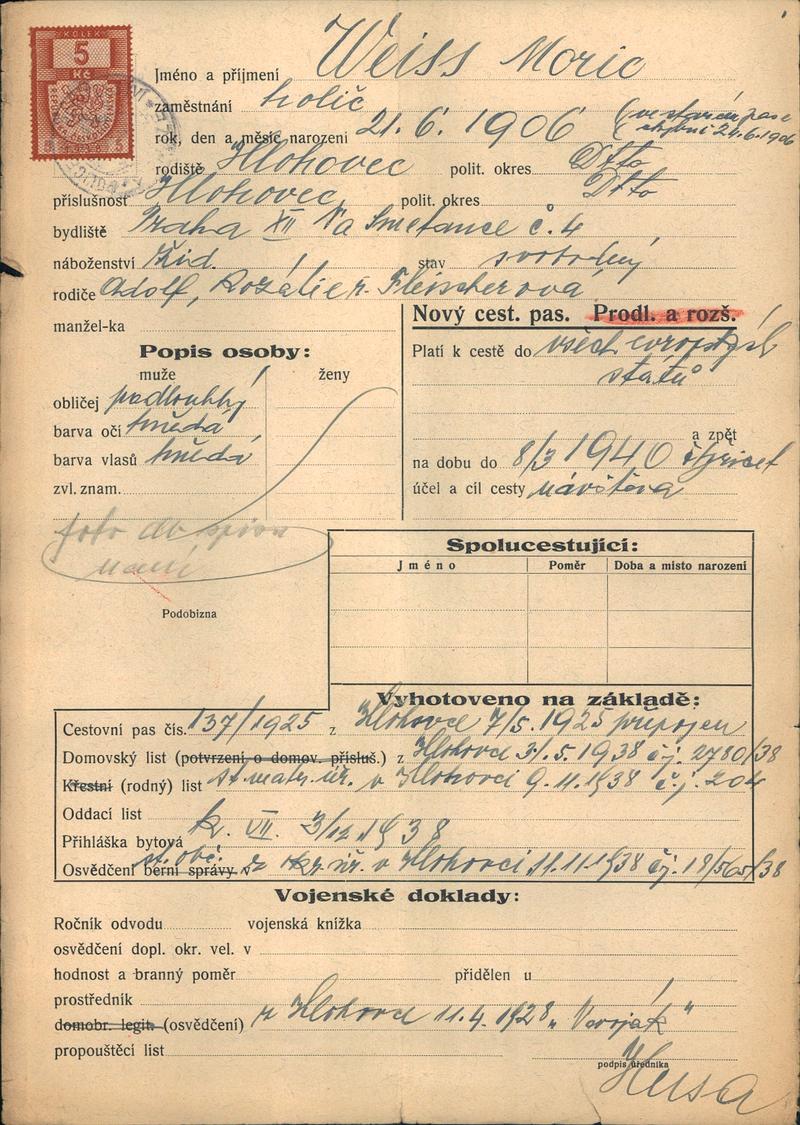 KOLEK
5
Kč
Jméno a příjmení Weiss Moric
zaměstnání holič
rok, den a měsíc narození 21. 6. 1906 (ve starém pase
24.6.1906
rodiště Hlohovec polit. okres Dtto
příslušnost Hlohovec polit. okres Dtto
bydliště Praha XII Na Smetance č. 4
náboženství Žid. stav svobodný
rodiče Adolf, Rozálie r. Fleischerová
manžel-ka
Nový cest. pas. Prodl. a rozš.
Popis osoby:
muže ženy
obličej podlouhlý
barva očí hnědá
barva vlasů hnědá
zvl. znam.
Platí k cestě do všech evropských
států
a zpět
na dobu do 8/3 1940
účel a cíl cesty návštěva
foto do spisu
není
Podobizna
Spolucestující:
Jméno Poměr Doba a místo narození
Vyhotoveno na základě:
Cestovní pas čís. 137/1925 z Hlohovce 7/5. 1925 připojen
Domovský list (potvrzení o domov. přísluš.) z Hlohovce 31.5.1938 čj. 2780/38
Křestní (rodný) list st. matr. úř. v Hlohovci 9.11.1938 č.j. 204
Oddací list
Přihláška bytová kr. VII. 3/12 1938
Osvědčení berní správy v st. obč. z okr. úř. v Hlohovci 11.11.1938 čj. 18/565/38
Vojenské doklady:
Ročník odvodu vojenská knížka
osvědčení dopl. okr. vel. v
hodnost a branný poměr přidělen u
prostředník
domobr. legit. (osvědčení) z Hlohovce 11.4.1928 "Nevoják"
propouštěcí list
podpis úředníka
Husa